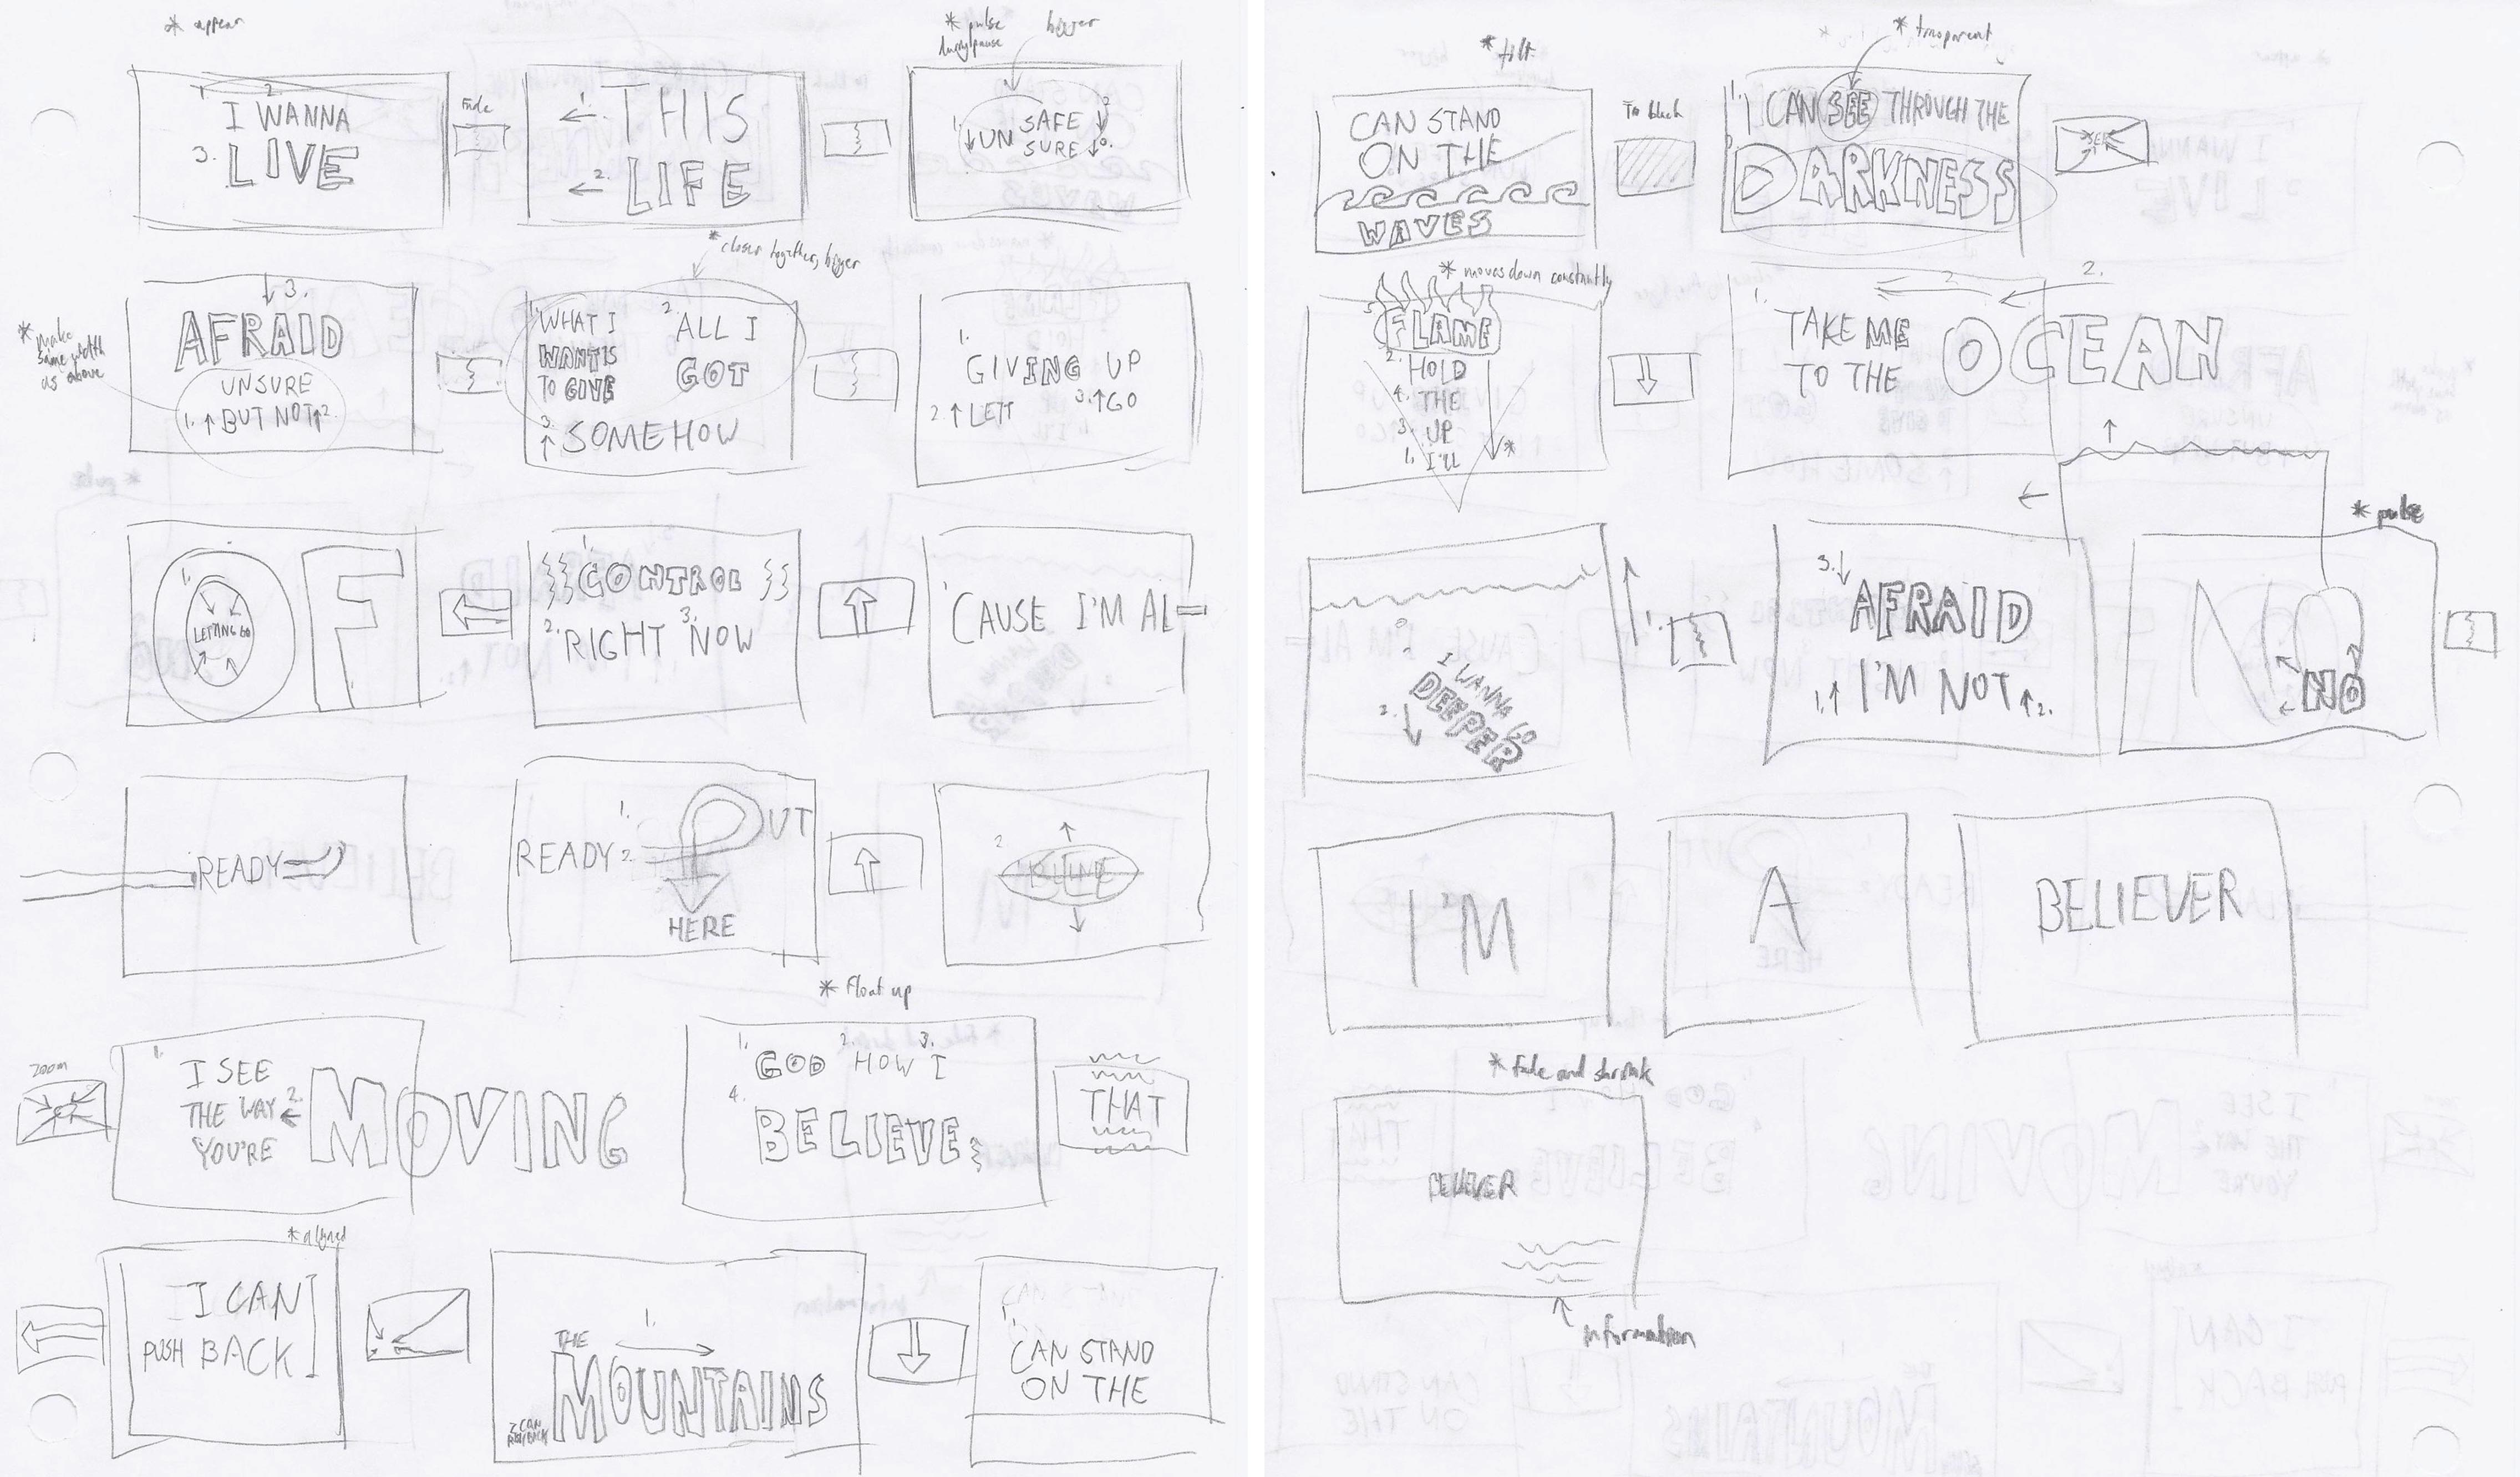 * appear
* pulse
bigger
1. 2.
I WANNA
3. LIVE
Fade
1. THIS
2. LIFE
1. UN SAFE 2
SURE
* closer together, bigger
* make
same width
as above
3.
AFRAID
UNSURE
1. BUT NOT 2.
1. WHAT I
WANT IS
TO GIVE
2. ALL I
GOT
3.
SOMEHOW
1.
GIVING UP
2 LETT 3. GO
1.
LETTING GO
OF
1.
CONTROL
2. RIGHT 3. NOW
'CAUSE I'M AL
READY
READY 1.
2.
OUT
HERE
2.
* Float up
Zoom
1.
I SEE
THE WAY
YOU'RE
2.
MOVING
1. GOD 2. HOW 3. I
4. BELIEVE
THAT
* aligned
I CAN
PUSH BACK
1.
THE
MOUNTAINS
I CAN
PUSH BACK
1.
CAN STAND
ON THE
* tilt
CAN STAND
ON THE
WAVES
To black
* transparent
1. I CAN SEE THROUGH THE
DARKNESS
* moves down constantly
5. FLAME
2. HOLD
4. THE
3. UP
1. I'LL
*
1. 2 2.
TAKE ME
TO THE
OCEAN
1.
I WANNA GO
2. DEEPER
3.
AFRAID
1. I'M NOT 2.
* pulse
NO
NO
I'M
A
BELIEVER
* Fade and shrink
BELIEVER
information